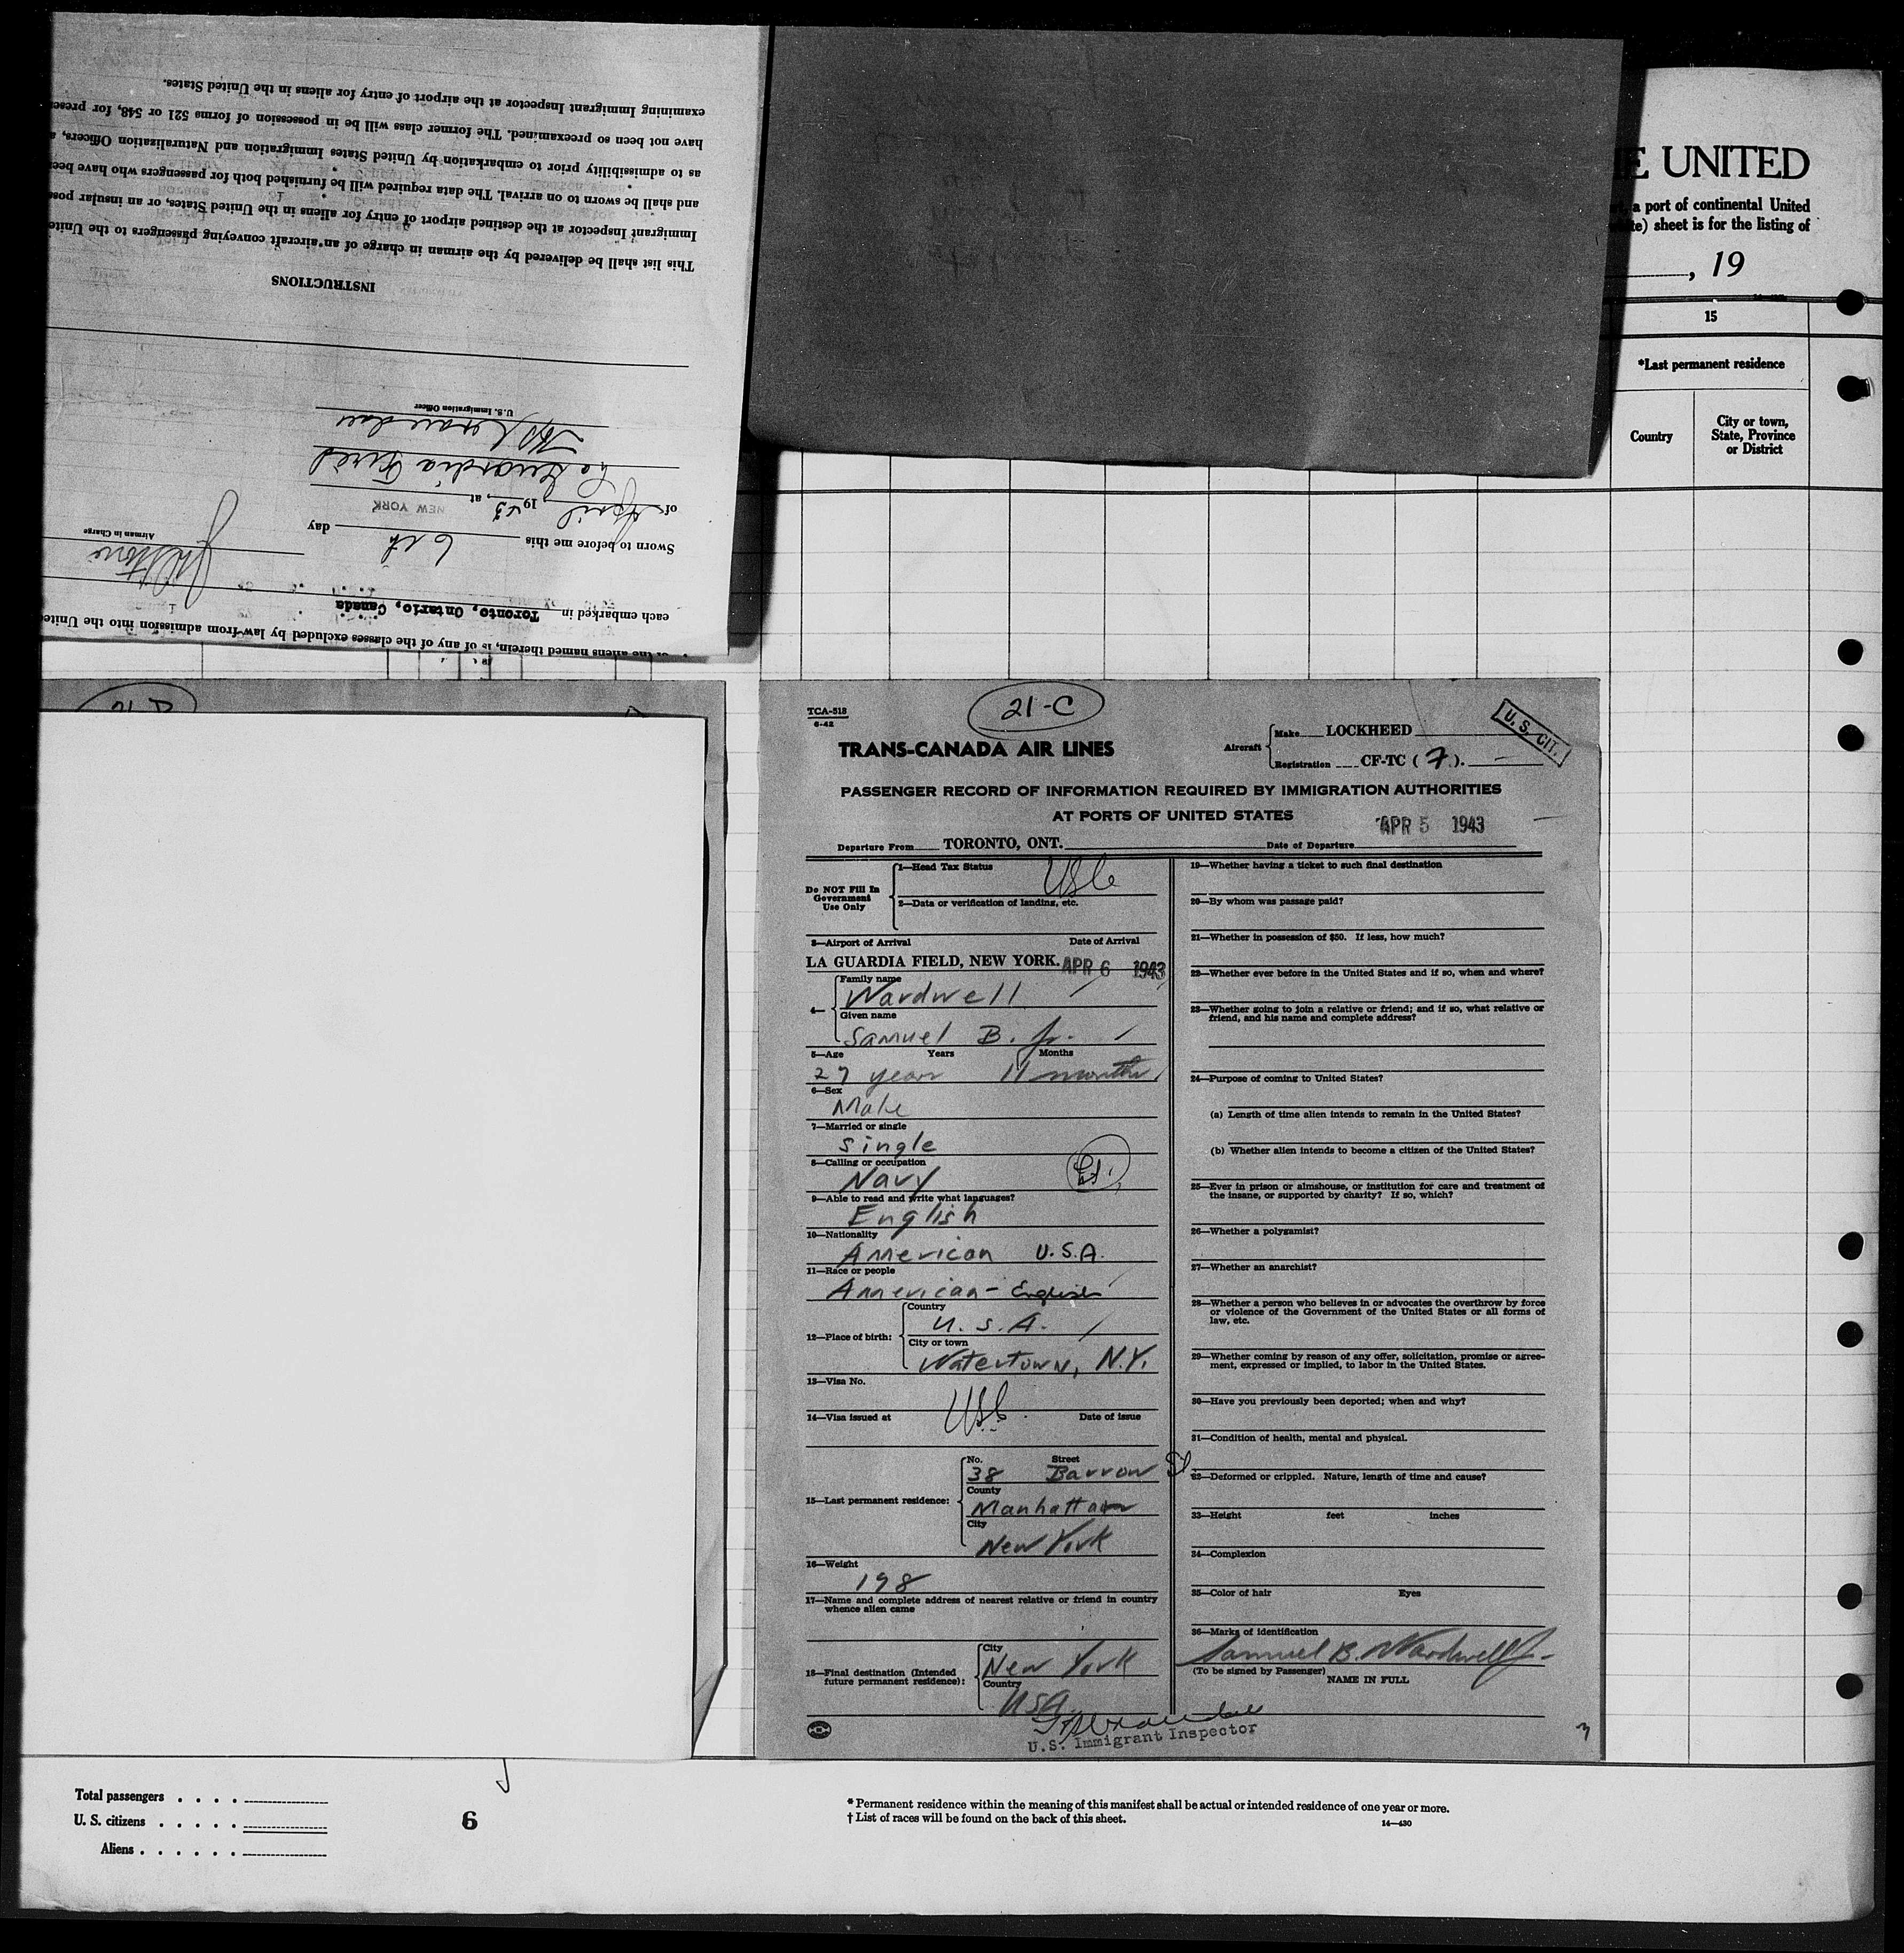 examining Immigrant Inspector at the airport of entry for aliens in the United States.
have not been so preexamined. The former class will be in possession of forms 521 or 548, for
as to admissibility prior to embarkation by United States Immigration and Naturalization Officers,
and shall be sworn to on arrival. The data required will be furnished both for passengers who have
Immigrant Inspector at the destined airport of entry for aliens in the United States, or an insular
This list shall be delivered by the airman in charge of an aircraft conveying passengers to the
INSTRUCTIONS
U.S. Immigration Officer
La Guardia Field
of April, 1943, at NEW YORK
Airman in Charge
Sworn to before me this 6th day
each embarked in Toronto, Ontario, Canada
of the aliens named therein, is of any of the classes excluded by law from admission into the
E UNITED
a port of continental United
sheet is for the listing of
, 19
15
*Last permanent residence
Country
City or town,
State, Province
or District
TCA-518
6-42
21-C
U. S. CIT.
TRANS-CANADA AIR LINES
Aircraft
Make LOCKHEED
Registration CF-TC ( 7 ).
PASSENGER RECORD OF INFORMATION REQUIRED BY IMMIGRATION AUTHORITIES
AT PORTS OF UNITED STATES
APR 5 1943
Departure From TORONTO, ONT. Date of Departure
Do NOT Fill In
Government
Use Only
1—Head Tax Status USC
2—Data or verification of landing, etc.
3—Airport of Arrival Date of Arrival
LA GUARDIA FIELD, NEW YORK. APR 6 1943
4—
Family name
Wardwell
Given name
Samuel B. Jr.
5—Age Years Months
27 years 11 months
6—Sex
Male
7—Married or single
Single
8—Calling or occupation
Navy
9—Able to read and write what languages?
English
10—Nationality
American U.S.A.
11—Race or people
American - English
12—Place of birth:
Country
U.S.A.
City or town
Watertown, N.Y.
13—Visa No.
USC
14—Visa issued at Date of issue
15—Last permanent residence:
No. Street
38 Barrow St
County
Manhattan
City
New York
16—Weight
198
17—Name and complete address of nearest relative or friend in country
whence alien came
18—Final destination (Intended
future permanent residence):
City
New York
Country
USA
U.S. Immigrant Inspector
19—Whether having a ticket to such final destination
20—By whom was passage paid?
21—Whether in possession of $50. If less, how much?
22—Whether ever before in the United States and if so, when and where?
23—Whether going to join a relative or friend; and if so, what relative or
friend, and his name and complete address?
24—Purpose of coming to United States?
(a) Length of time alien intends to remain in the United States?
(b) Whether alien intends to become a citizen of the United States?
25—Ever in prison or almshouse, or institution for care and treatment of
the insane, or supported by charity? If so, which?
26—Whether a polygamist?
27—Whether an anarchist?
28—Whether a person who believes in or advocates the overthrow by force
or violence of the Government of the United States or all forms of
law, etc.
29—Whether coming by reason of any offer, solicitation, promise or agree-
ment, expressed or implied, to labor in the United States.
30—Have you previously been deported; when and why?
31—Condition of health, mental and physical.
32—Deformed or crippled. Nature, length of time and cause?
33—Height feet inches
34—Complexion
35—Color of hair Eyes
36—Marks of identification
Samuel B. Wardwell Jr.
(To be signed by Passenger)
NAME IN FULL
Total passengers . . . .
U. S. citizens . . . . .
Aliens . . . . . .
6
* Permanent residence within the meaning of this manifest shall be actual or intended residence of one year or more.
† List of races will be found on the back of this sheet.
14—430